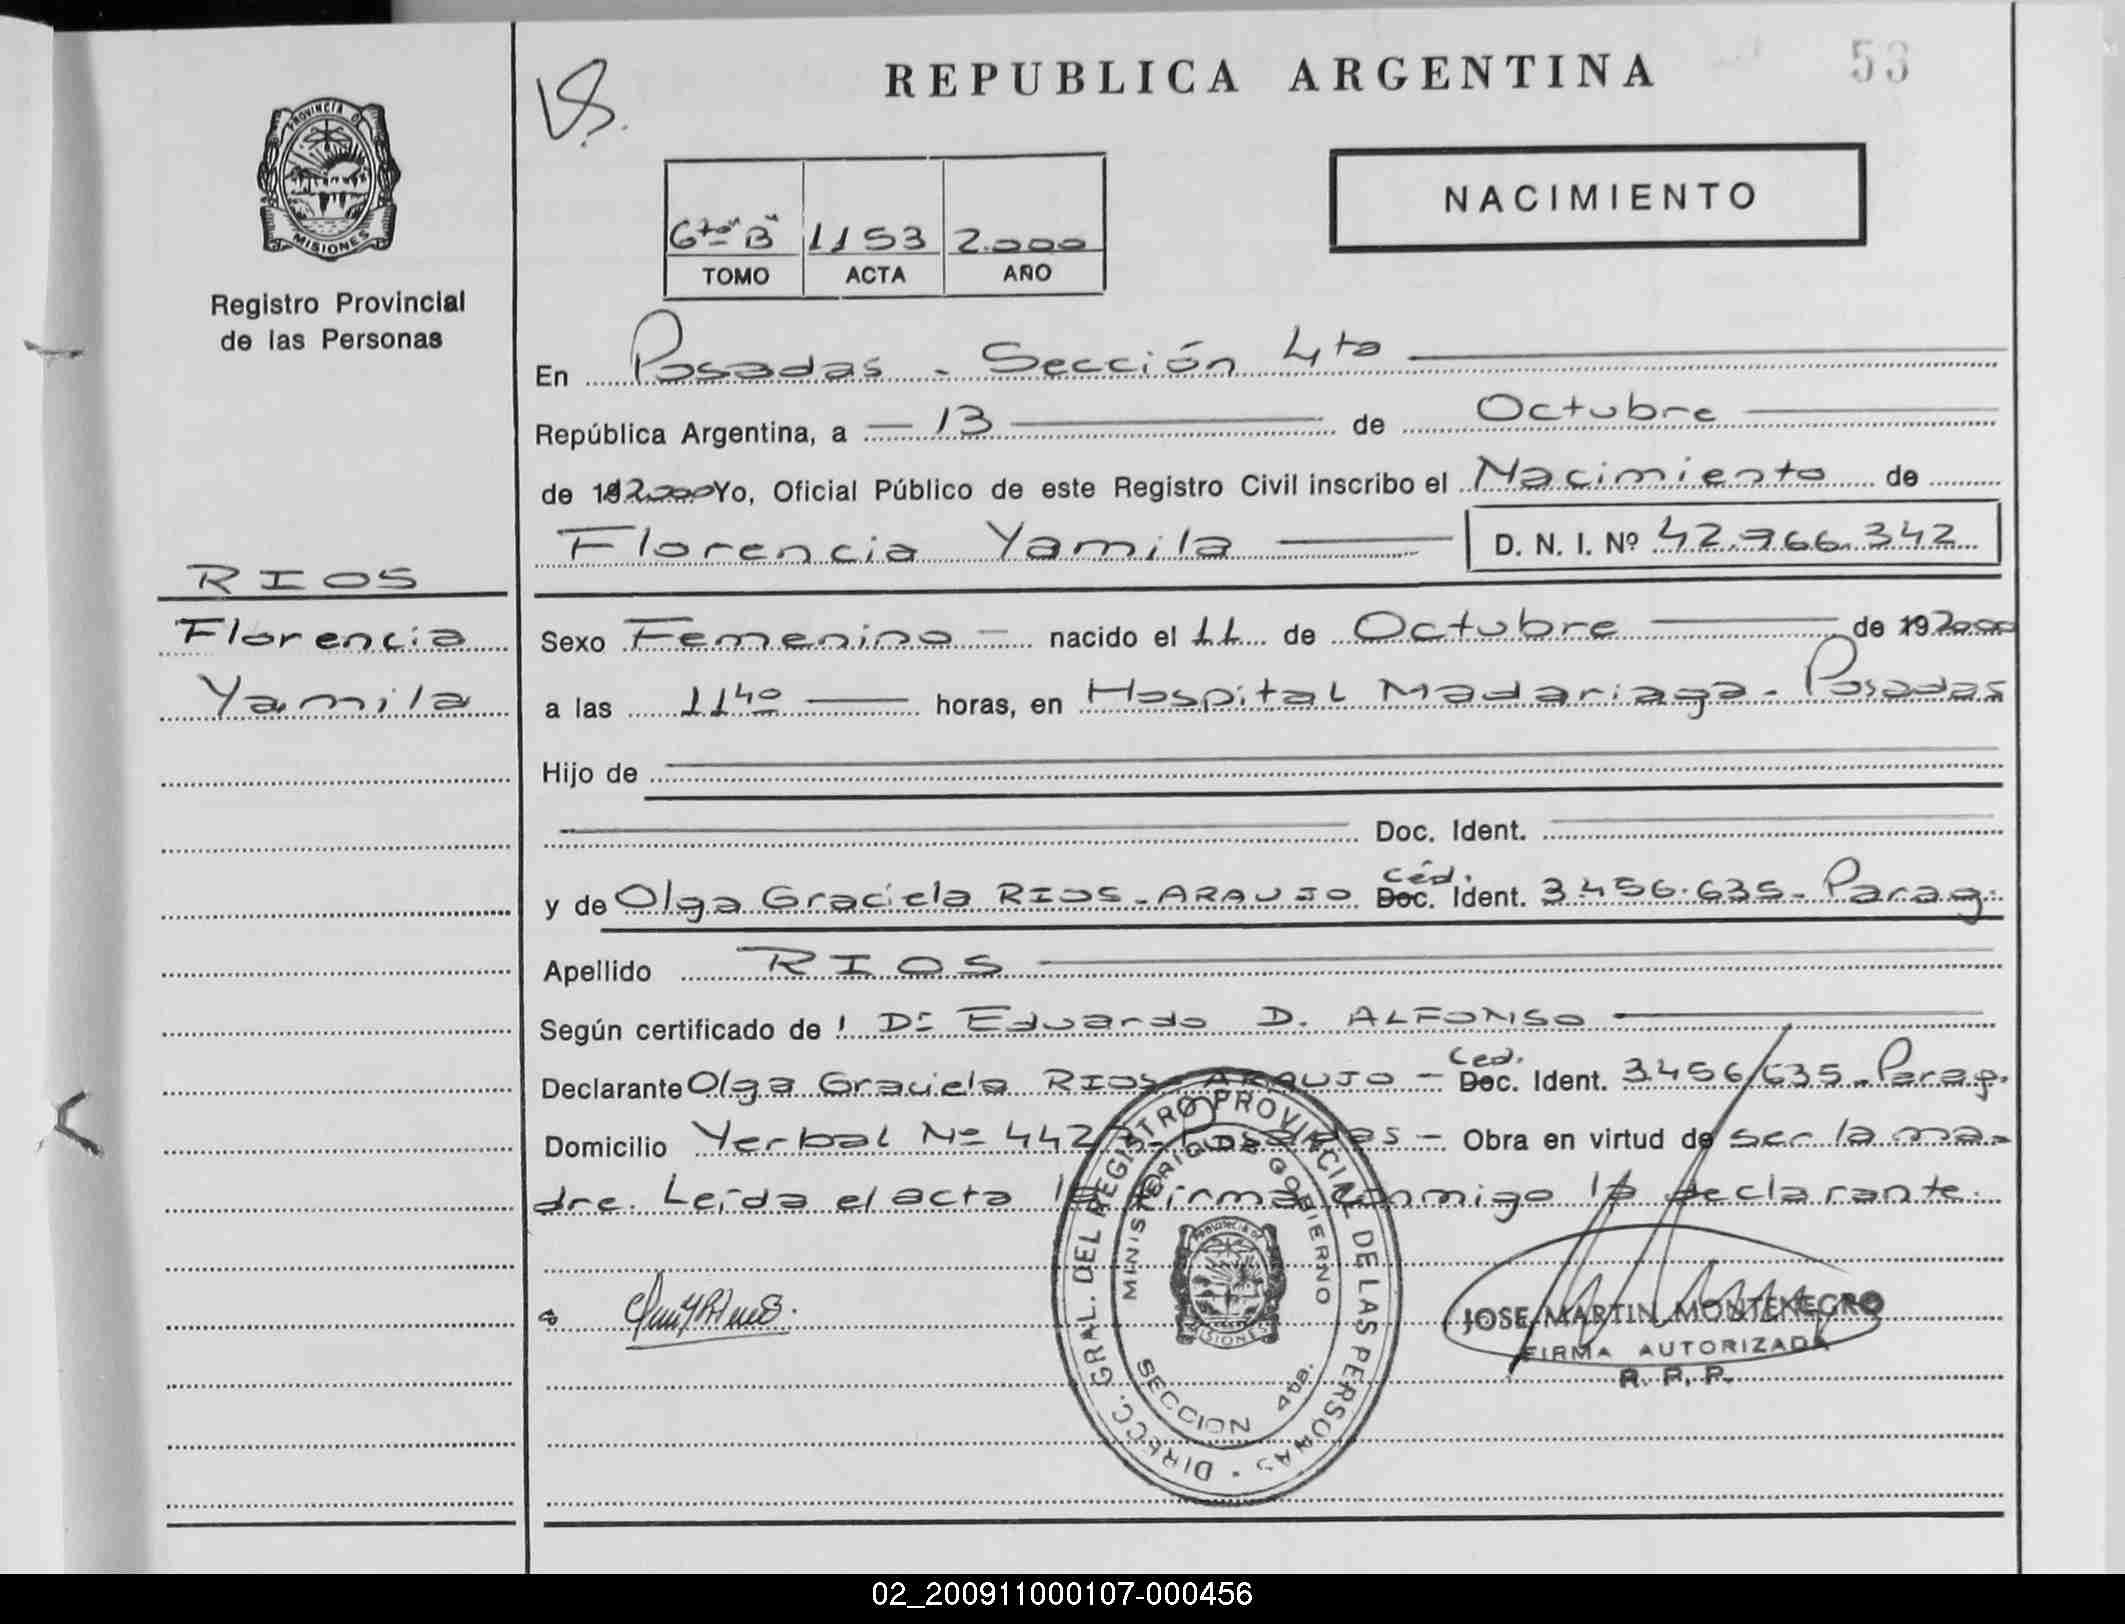 REPUBLICA ARGENTINA
53
PROVINCIA DE
MISIONES
Registro Provincial
de las Personas
NACIMIENTO
6to "B" 1153 2.000
TOMO ACTA AÑO
En Posadas - Sección 4ta
República Argentina, a 13 de Octubre
de 192.000 Yo, Oficial Público de este Registro Civil inscribo el Nacimiento de
Florencia Yamila D. N. I. Nº 42.766.342
RIOS
Florencia
Yamila
Sexo Femenino - nacido el 11 de Octubre de 192000
a las 11 40 horas, en Hospital Madariaga - Posadas
Hijo de
Doc. Ident.
y de Olga Graciela RIOS - ARAUJO Céd. Doc. Ident. 3.456.635 - Parag.
Apellido RIOS
Según certificado de Dr Eduardo D. ALFONSO
Declarante Olga Graciela RIOS ARAUJO - Ced. Doc. Ident. 3456635 - Parag.
Domicilio Yerbal Nº Posadas - Obra en virtud de ser la ma-
dre. Leída el acta la firma conmigo la declarante.
DIRECC. GRAL. DEL REGISTRO PROVINCIAL DE LAS PERSONAS
MINISTERIO DE GOBIERNO
PROVINCIA DE
MISIONES
SECCION 4ta.
JOSE MARTIN MONTENEGRO
FIRMA AUTORIZADA
R. P. P.
02_200911000107-000456